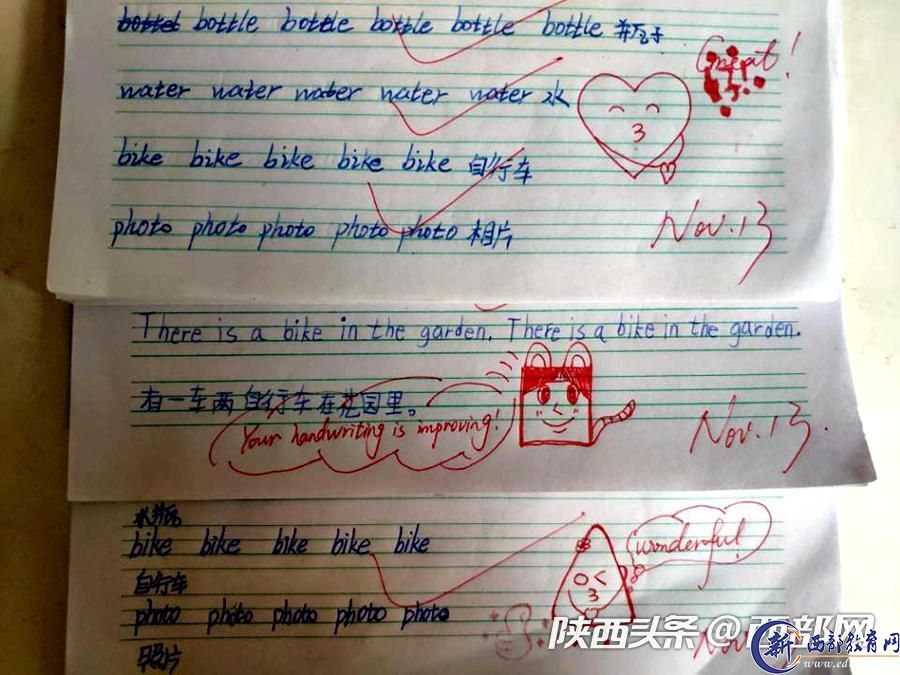 bottel bottle bottle bottle bottle bottle 并瓦子
Great!
water water water water water 水
bike bike bike bike bike 自行车
photo photo photo photo photo 相片
Nov. 13
There is a bike in the garden. There is a bike in the garden.
有一车两自行车在花园里。
Your handwriting is improving!
Nov. 13.
水瓶
bike bike bike bike bike
wonderful
自行车
photo photo photo photo photo
照片
Nov
陕西头条 @西部网
新 西部教育网
www.ed